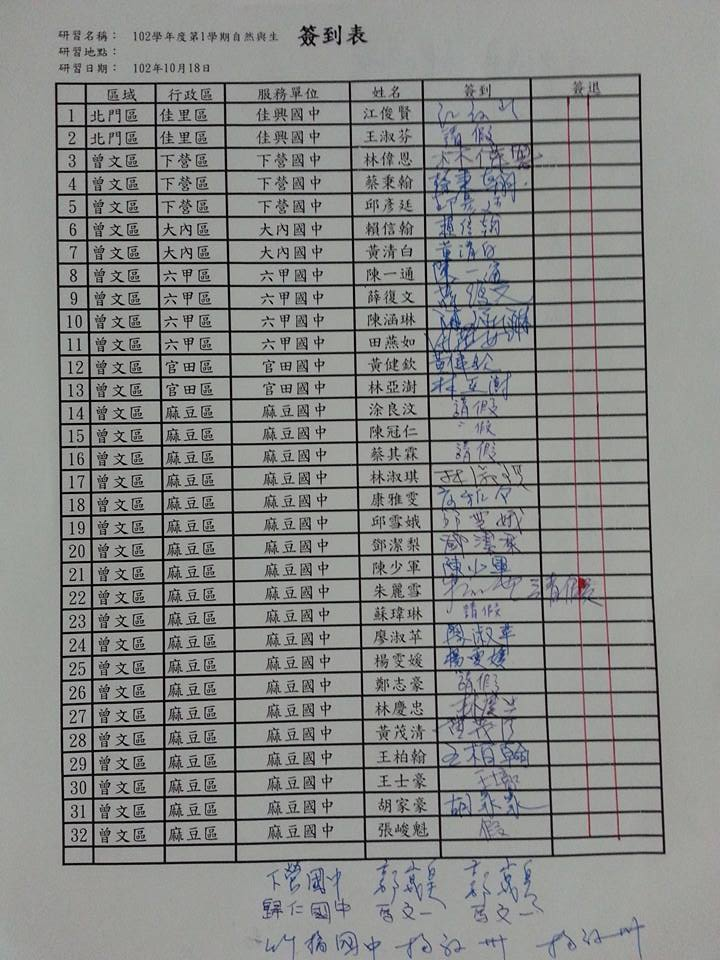 研習名稱： 102學年度第1學期自然與生 簽到表
研習地點：
研習日期： 102年10月18日
區域 行政區 服務單位 姓名 簽到 簽退
1 北門區 佳里區 佳興國中 江俊賢
2 北門區 佳里區 佳興國中 王淑芬 請假
3 曾文區 下營區 下營國中 林偉恩 林偉恩
4 曾文區 下營區 下營國中 蔡秉翰 蔡秉翰
5 曾文區 下營區 下營國中 邱彥廷
6 曾文區 大內區 大內國中 賴信翰 賴信翰
7 曾文區 大內區 大內國中 黃清白 黃清白
8 曾文區 六甲區 六甲國中 陳一通 陳一通
9 曾文區 六甲區 六甲國中 薛復文 薛復文
10 曾文區 六甲區 六甲國中 陳涵琳 陳涵琳
11 曾文區 六甲區 六甲國中 田燕如
12 曾文區 官田區 官田國中 黃健欽 黃健欽
13 曾文區 官田區 官田國中 林亞澍 林亞澍
14 曾文區 麻豆區 麻豆國中 涂良汶 請假
15 曾文區 麻豆區 麻豆國中 陳冠仁 假
16 曾文區 麻豆區 麻豆國中 蔡其霖 請假
17 曾文區 麻豆區 麻豆國中 林淑琪
18 曾文區 麻豆區 麻豆國中 康雅雯 康雅雯
19 曾文區 麻豆區 麻豆國中 邱雪娥 邱雪娥
20 曾文區 麻豆區 麻豆國中 鄧潔梨 鄧潔梨
21 曾文區 麻豆區 麻豆國中 陳少軍 陳少軍
22 曾文區 麻豆區 麻豆國中 朱麗雪 請假
23 曾文區 麻豆區 麻豆國中 蘇瑋琳 請假
24 曾文區 麻豆區 麻豆國中 廖淑苹 廖淑苹
25 曾文區 麻豆區 麻豆國中 楊雯媛 楊雯媛
26 曾文區 麻豆區 麻豆國中 鄭志豪 請假
27 曾文區 麻豆區 麻豆國中 林慶忠 林慶忠
28 曾文區 麻豆區 麻豆國中 黃茂清 黃茂清
29 曾文區 麻豆區 麻豆國中 王柏翰 王柏翰
30 曾文區 麻豆區 麻豆國中 王士豪
31 曾文區 麻豆區 麻豆國中 胡家豪 胡家豪
32 曾文區 麻豆區 麻豆國中 張峻魁 假
下營國中
歸仁國中
國中